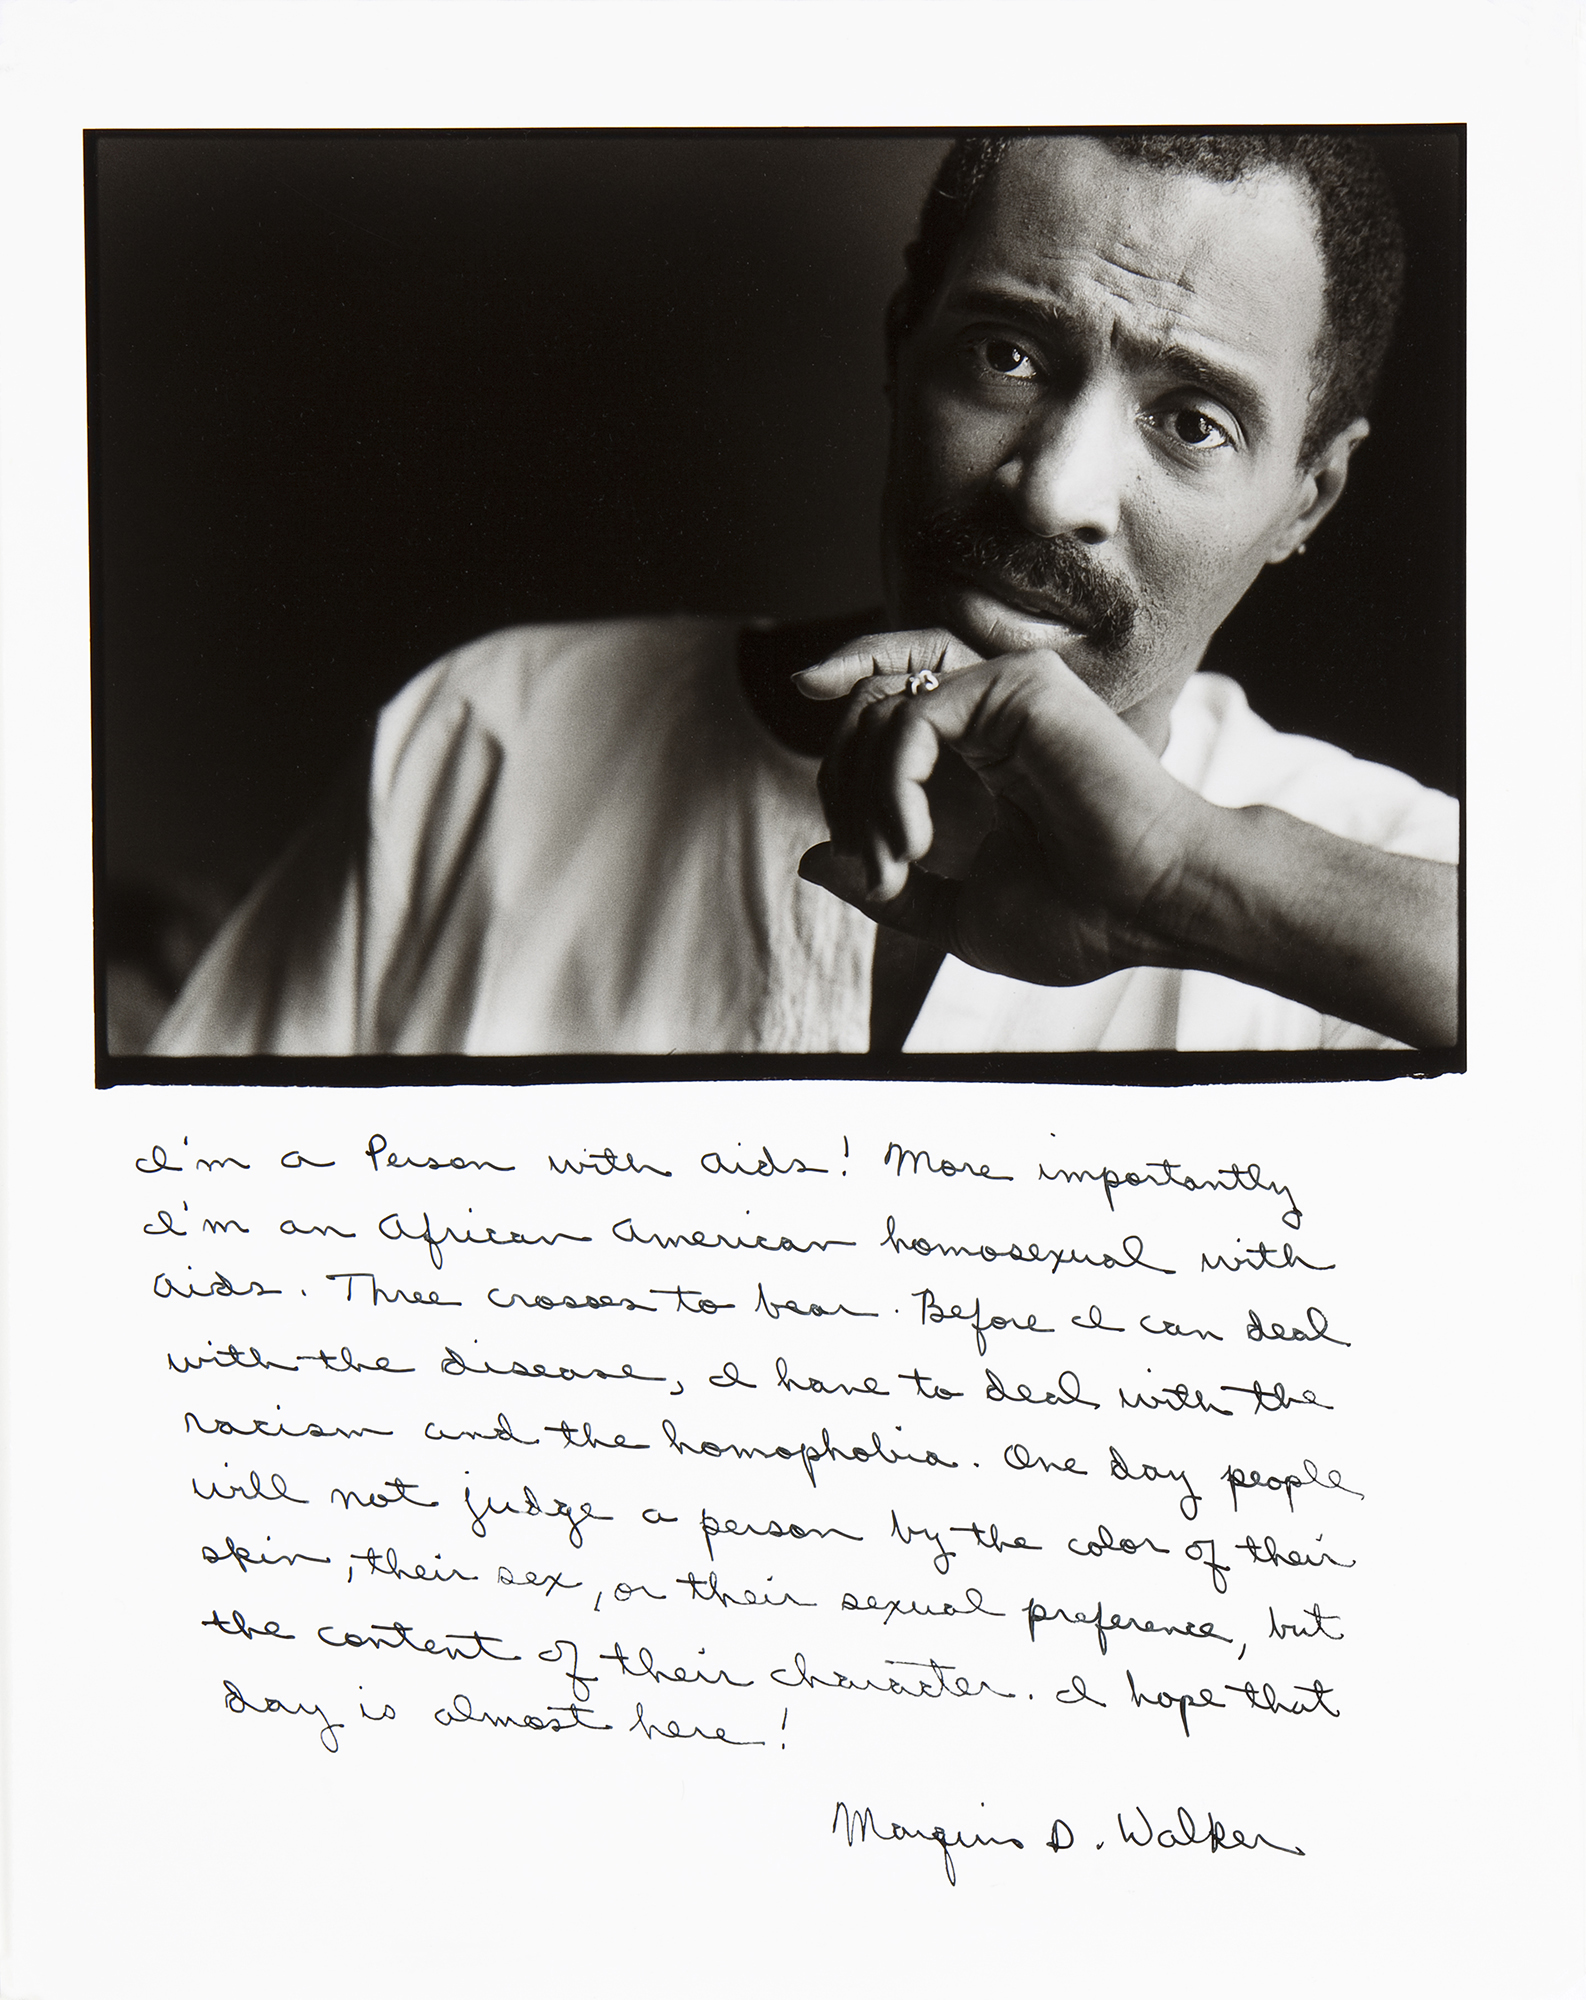 I'm a Person with aids! More importantly
I'm an African American homosexual with
aids. Three crosses to bear. Before I can deal
with the disease, I have to deal with the
racism and the homophobia. One day people
will not judge a person by the color of their
skin, their sex, or their sexual preference, but
the content of their character. I hope that
day is almost here!
D. Walker